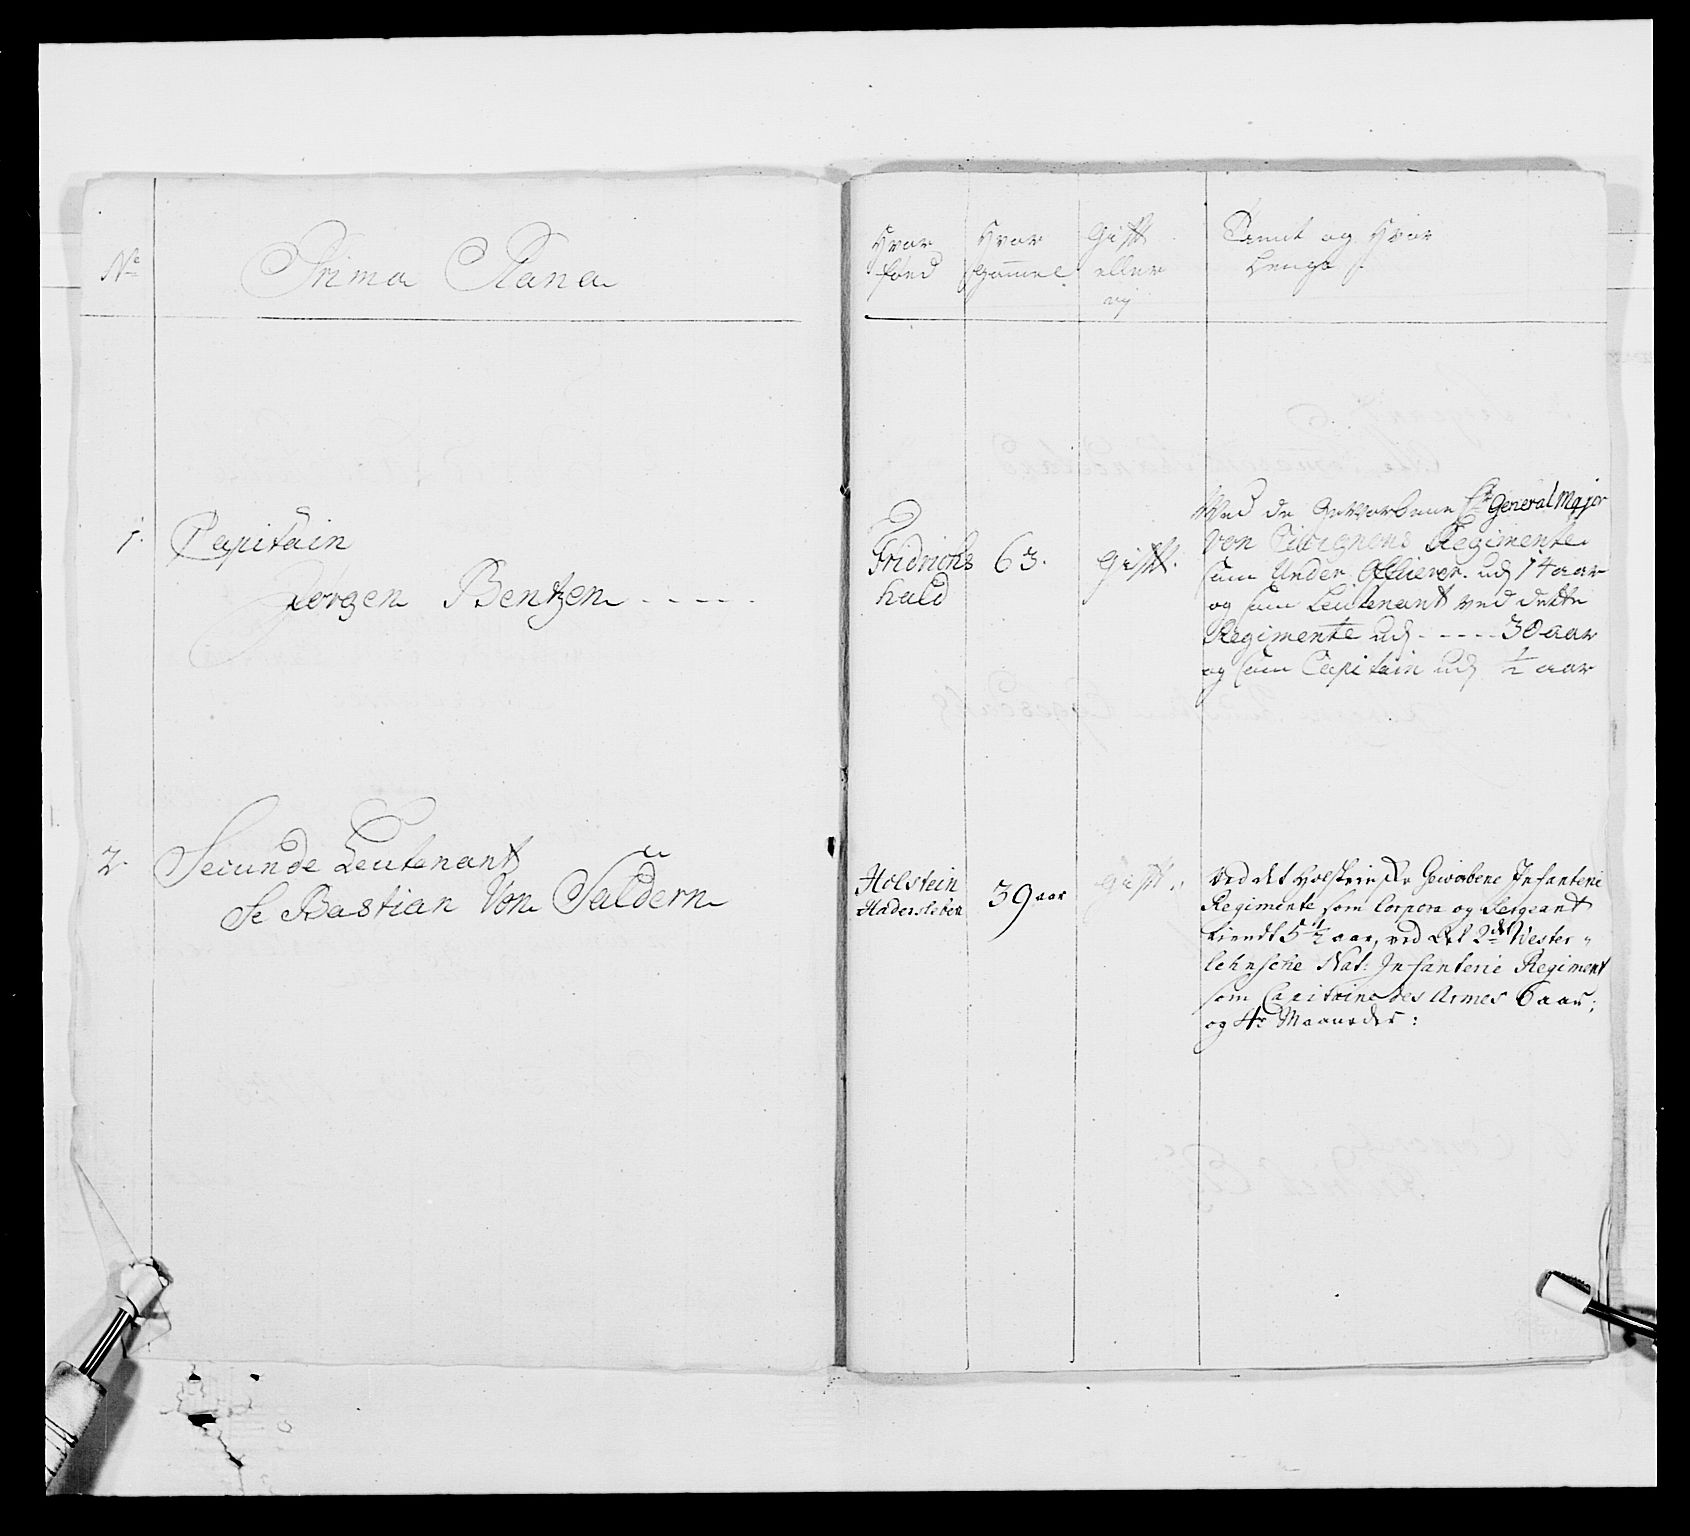 No
Prima Plana
Hvor
føed
Hvor
Gammel
Gift
eller
ey
Tient og Hvor
Lenge
1.
Capitain
Jørgen Bentzen
Fridrichs
hald
63.
Gift.
Ved de Gevorbene Hr General Major
Von Regimente
som Under Officerer udj 14 aar
og som Leutenant ved dette
Regimente udj - - - - 30 aar
og som Capitain udj ½ aar
2.
Secunde Leutenant
Se Bastian Von Saldern
Holstein
Hadersleben
39 aar
Gift.
Ved det Holsteinske Gevorbene Infanterie
Regimente som Corpora og Sergeant
tiendt 5½ aar, ved det 2det Wester
lehnsche Nat: Infanterie Regiment
som Capitaine des Armes 6 aar;
og 4re Maaneder: